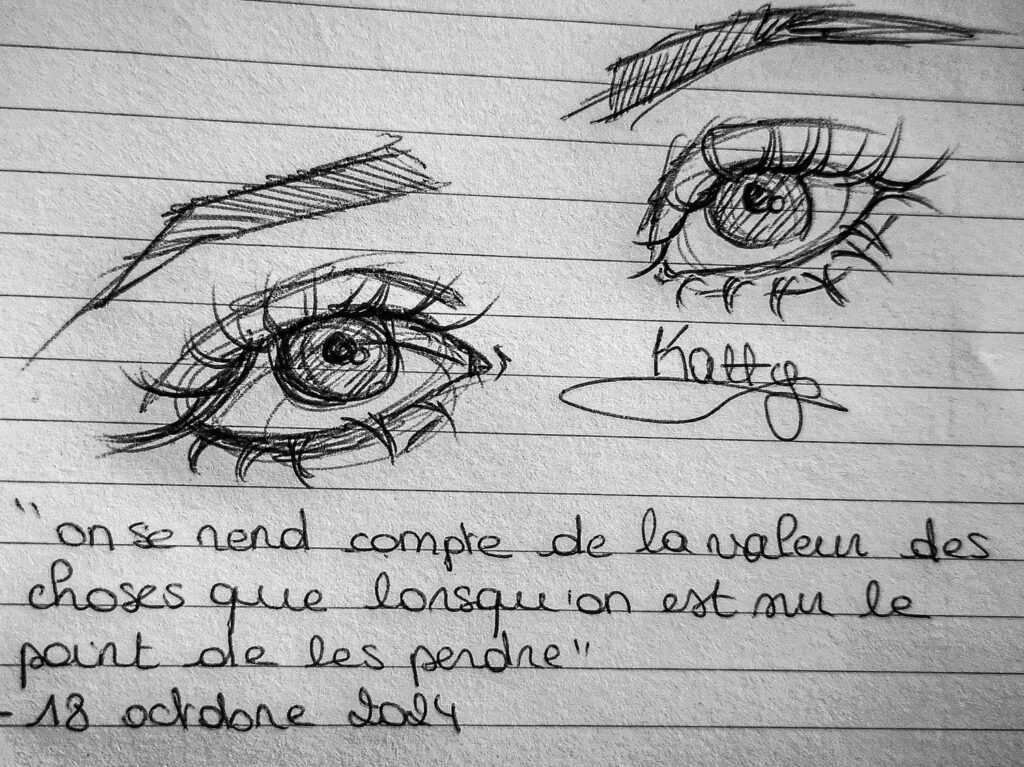 Katty
"on se rend compte de la valeur des
choses que lorsqu'on est sur le
point de les perdre"
- 18 octobre 2024